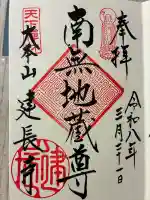 奉拝
令和八年
三月三十一日
南無地蔵尊
天下禅林
大本山 建長寺